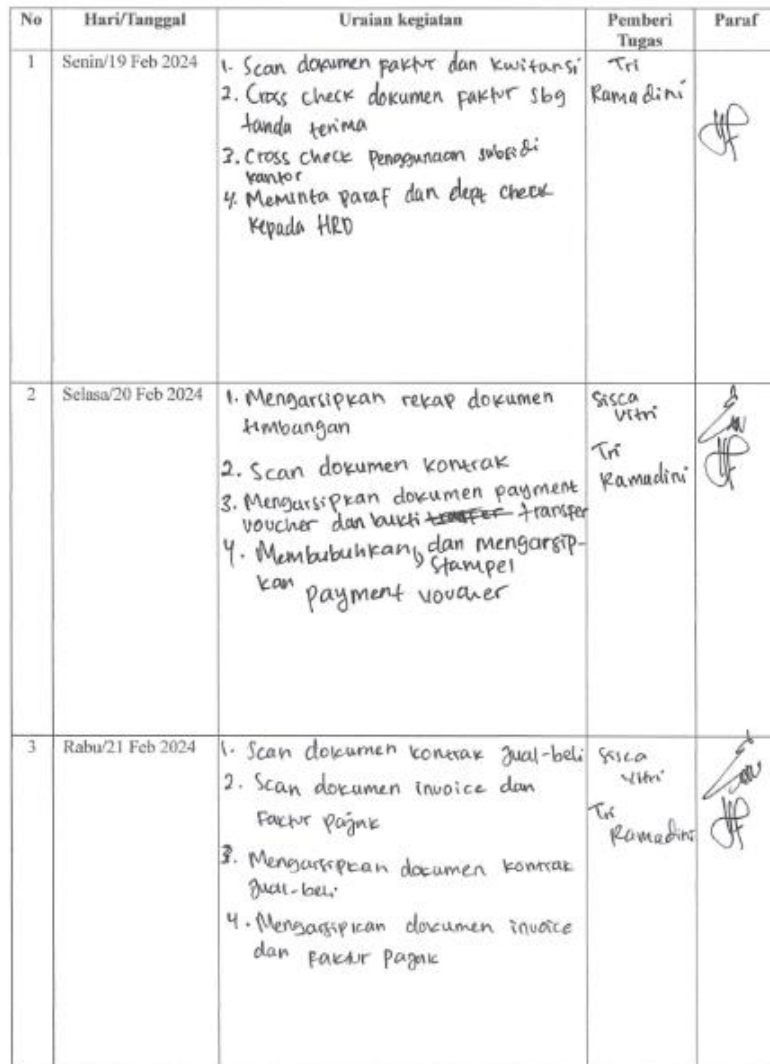 No Hari/Tanggal Uraian kegiatan Pemberi Tugas Paraf
1 Senin/19 Feb 2024
1. Scan dokumen faktur dan kwitansi
2. Cross check dokumen faktur sbg
tanda terima
3. Cross check Penggunaan subsidi
kantor
4. Meminta paraf dan dept check
kepada HRD
Tri
Ramadini
2 Selasa/20 Feb 2024
1. Mengarsipkan rekap dokumen
timbangan
2. Scan dokumen kontrak
3. Mengarsipkan dokumen payment
voucher dan bukti transfer transfer
4. Membubuhkan, dan mengarsip-
stampel
kan
payment voucher
Sisca
Vitri
Tri
Ramadini
3 Rabu/21 Feb 2024
1. Scan dokumen kontrak jual-beli
2. Scan dokumen invoice dan
Faktur pajak
3. Mengarsipkan dokumen kontrak
jual-beli
4. Mengarsipkan dokumen invoice
dan Faktur Pajak
Sisca
Vitri
Tri
Ramadini